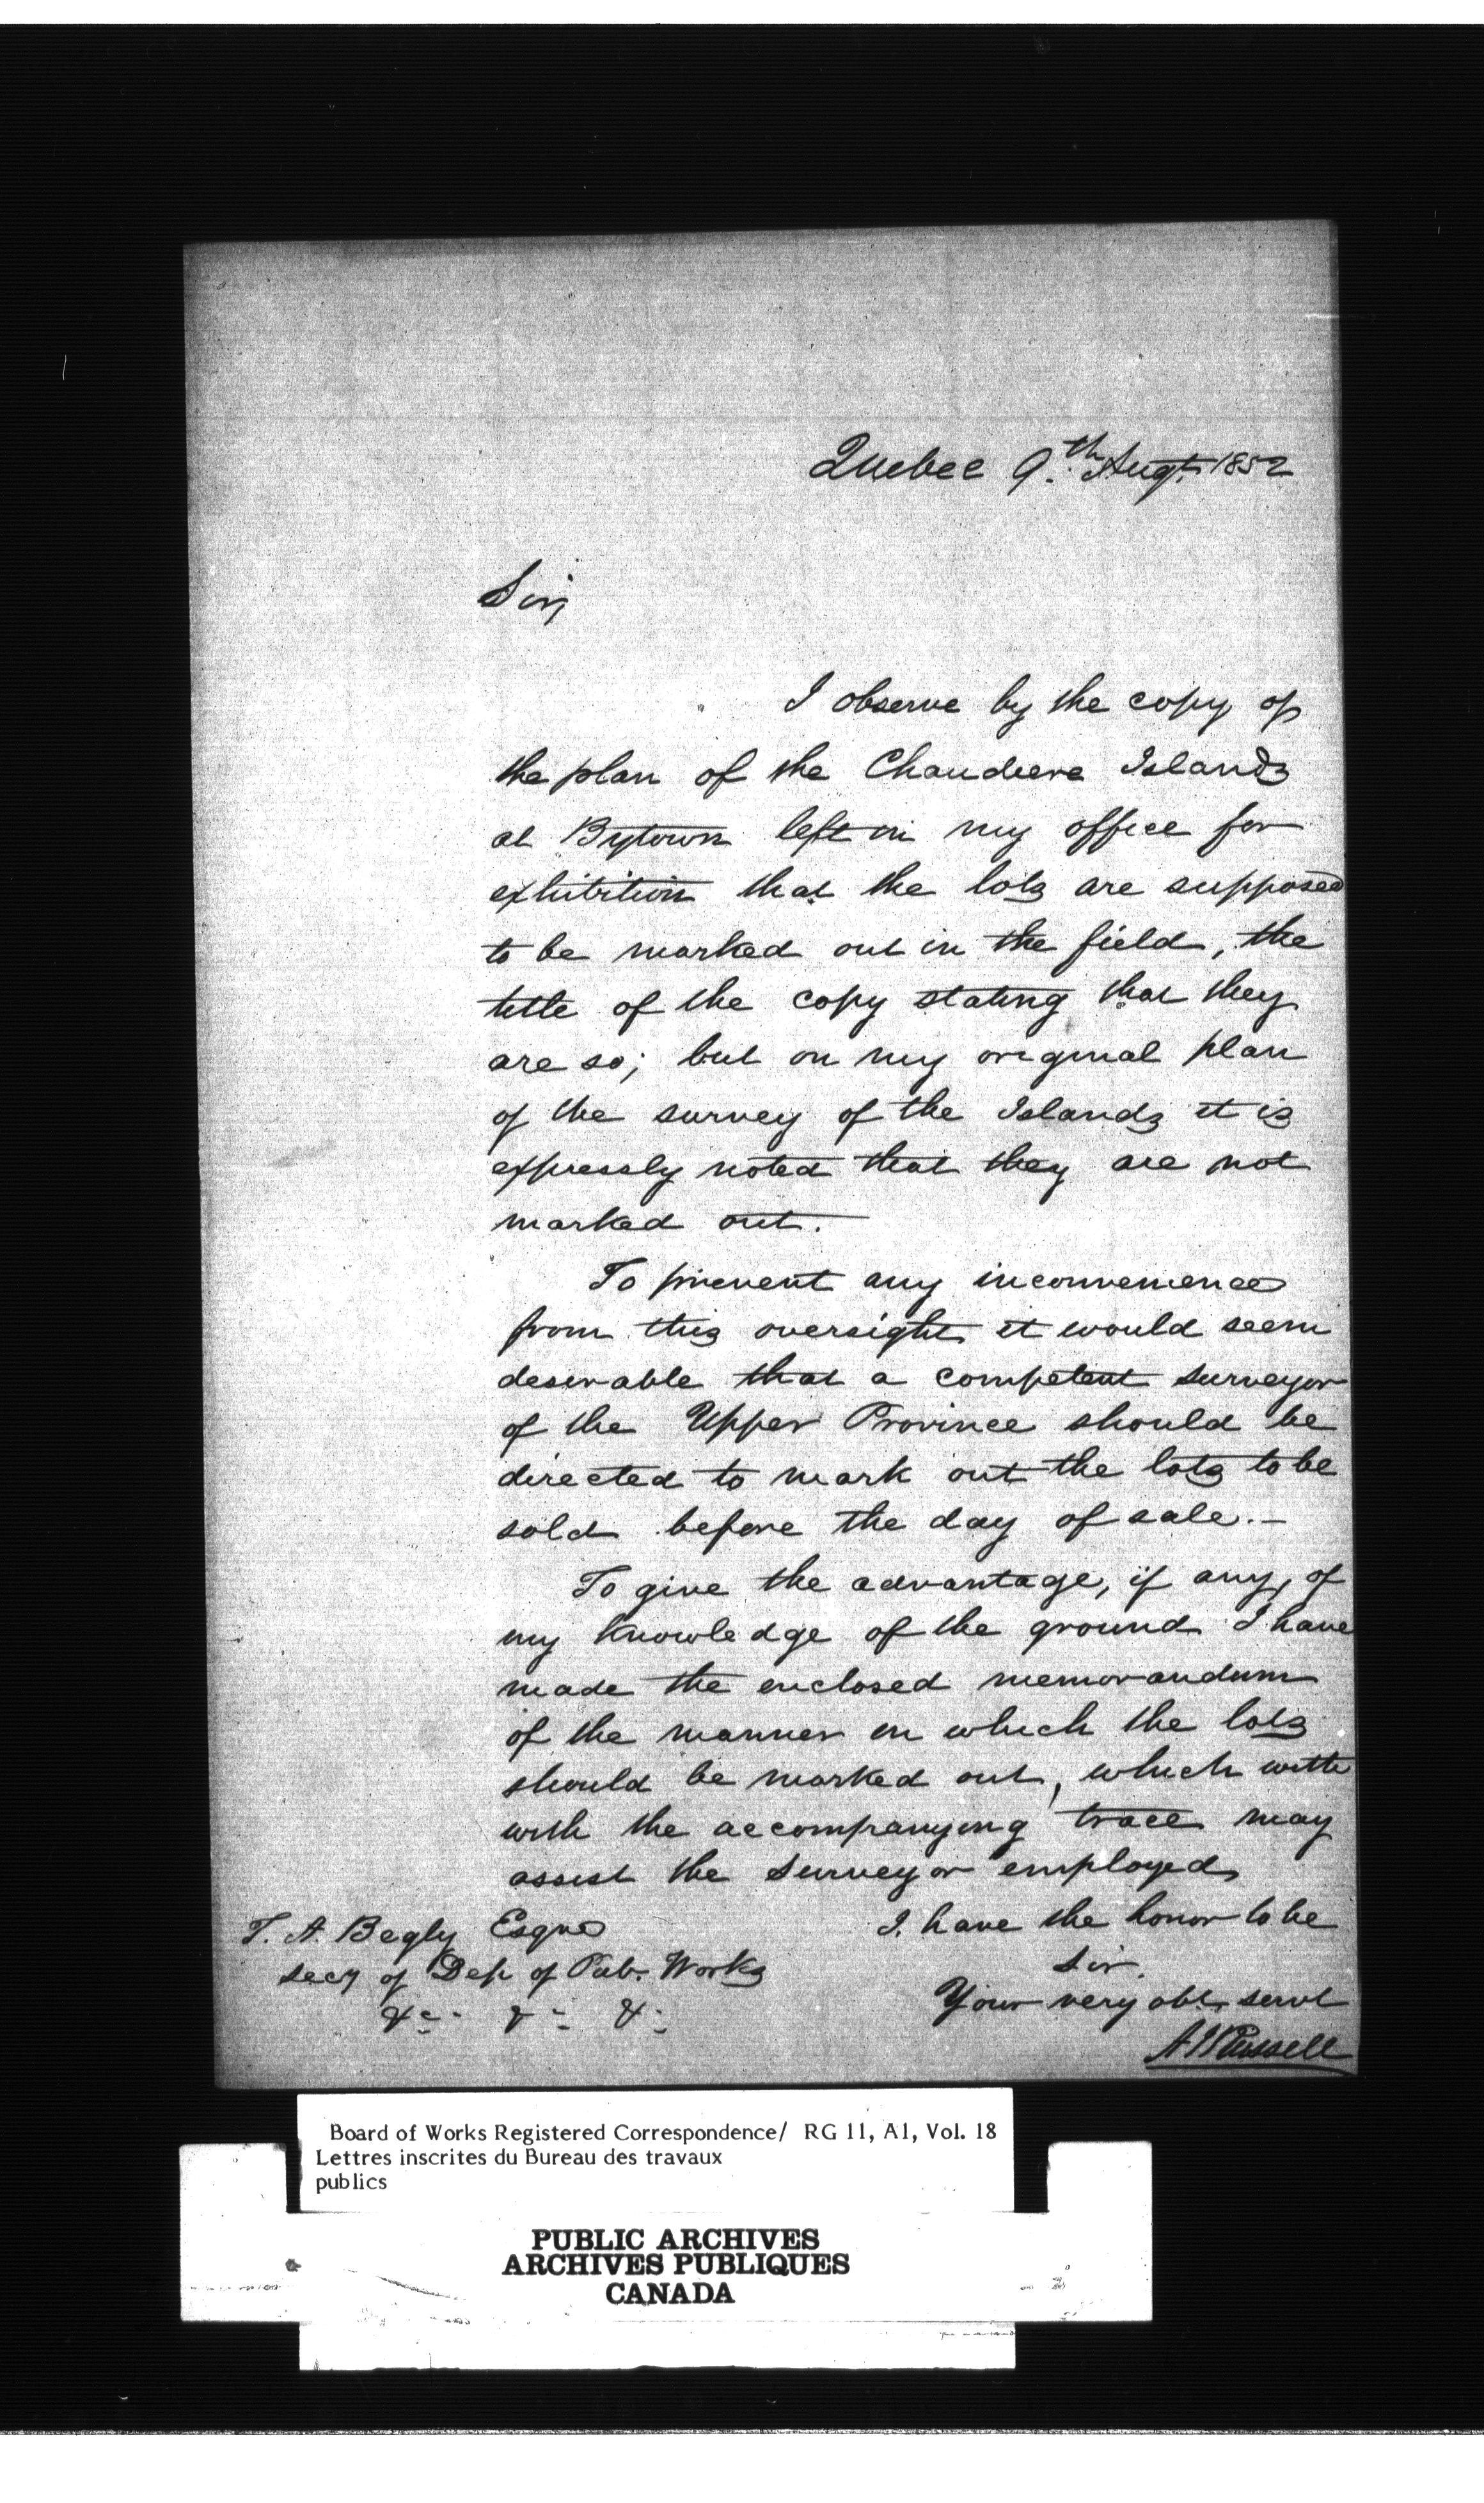 Quebec 9.th Augt. 1852
Sir,
I observe by the copy of
the plan of the Chaudiere Islands
at Bytown left in my office for
exhibition that the lots are supposed
to be marked out in the field, the
title of the copy stating that they
are so; but on my original plan
of the survey of the Islands it is
expressly noted that they are not
marked out.
To prevent any inconvenience
from this oversight it would seem
desirable that a competent surveyor
of the Upper Province should be
directed to mark out the lots to be
sold before the day of sale.-
To give the advantage, if any, of
my knowledge of the ground I have
made the enclosed memorandum
of the manner in which the lots
should be marked out, which with
with the accompanying trace may
assist the surveyor employed
I have the honor to be
Sir.
Your very obt. servt
A J Russell
T. A. Begly Esqre
Secy of Dep of Pub. Works
&c. &c &c
Board of Works Registered Correspondence/ RG 11, A1, Vol. 18
Lettres inscrites du Bureau des travaux
publics
PUBLIC ARCHIVES
ARCHIVES PUBLIQUES
CANADA